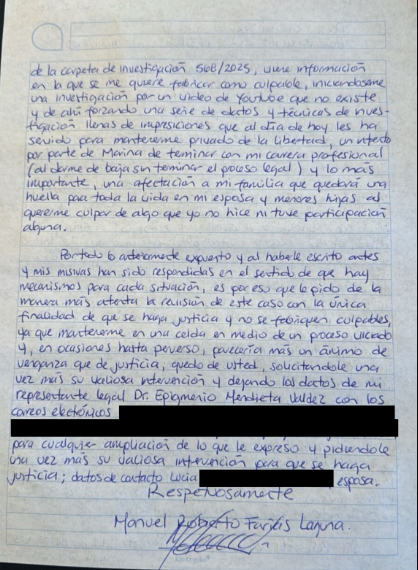 de la carpeta de investigación 568/2025, viene información
en la que se me quiere fabricar como culpable, iniciandose
una investigación por un video de Youtube que no existe
y de ahí forzando una serie de datos y técnicas de inves-
tigación llenas de impresiciones que al día de hoy les ha
servido para mantenerme privado de la libertad, un intento
por parte de Marina de terminar con mi carrera profesional
(al darme de baja sin terminar el proceso legal) y lo más
importante, una afectación a mi familia que quedará una
huella para toda la vida en mi esposa y menores hijas al
quererme culpar de algo que yo no hice ni tuve participación
alguna.
Por todo lo anteriormente expuesto y al haberle escrito antes
y mis misivas han sido respondidas en el sentido de que hay
mecanismos para cada situación, es por eso que le pido de la
manera más atenta la revisión de este caso con la única
finalidad de que se haga justicia y no se fabriquen culpables,
ya que mantenerme en una celda en medio de un proceso viciado
y, en ocasiones hasta perverso, parecería más un ánimo de
venganza que de justicia, quedo de usted, solicitandole una
vez más su valiosa intervención y dejando los datos de mi
representante legal Dr. Epigmenio Mendieta Valdez con los
correos electrónicos
para cualquier ampliación de lo que le expreso y pidiendole
una vez más su valiosa intervención para que se haga
justicia; datos de contacto Lucía esposa.
Respetuosamente
Manuel Roberto Farjeis Laguna.